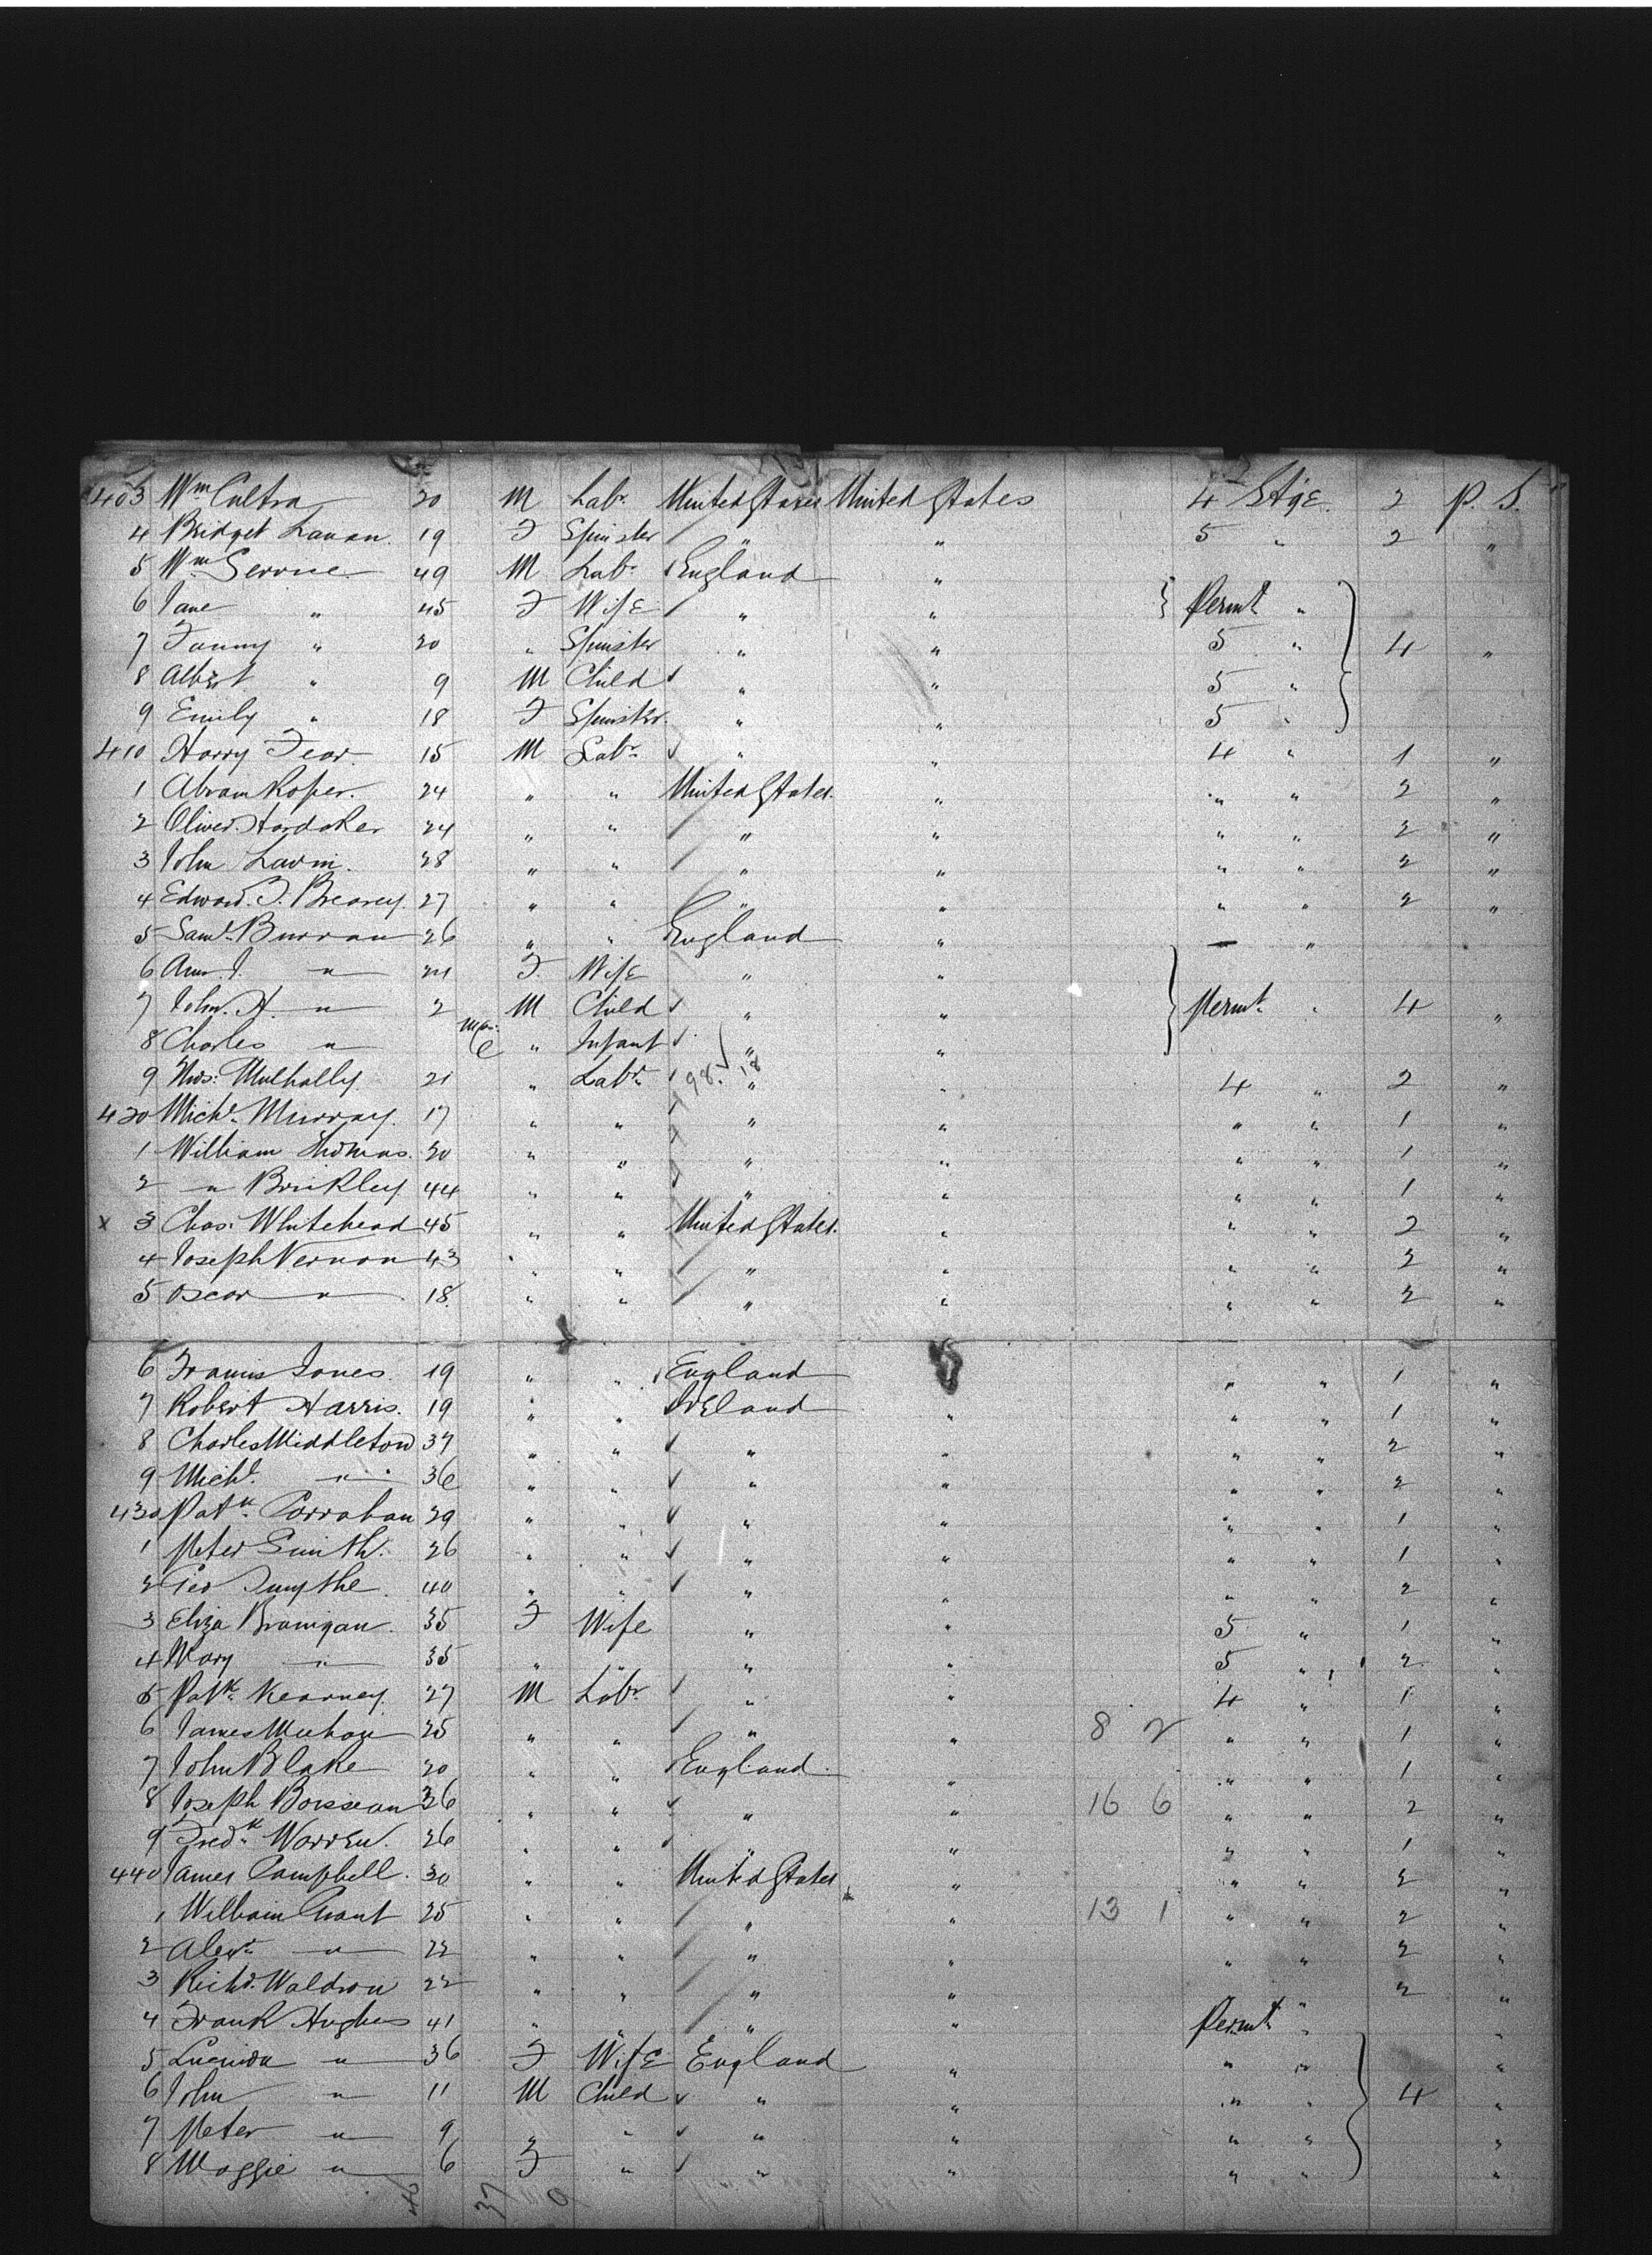 403 Wm Cultra 20 M Labr United States United States 4 Stge. 2 P. S.
4 Bridget Lavan. 19 F Spinster " " 5 " 2 "
5 Wm Service 49 M Labr England "
6 Jane " 45 F Wife " " Permt "
7 Fanny " 20 " Spinster " " 5 " 4 "
8 Albert " 9 M Child " " 5 "
9 Emily " 18 F Spinster. " " 5 "
410 Harry Fear. 15 M Labr " " 4 " 1 "
1 Abram Roper. 24 " " United States. " " " 2 "
2 Oliver Hardaker 24 " " " " " " 2 "
3 John Lavin. 28 " " " " " " 2 "
4 Edward. J. Brearey. 27 " " " " " " 2 "
5 Saml Burran 26 " " England " — "
6 Ann. J. " 24 F. Wife " "
7 John. H. " 2 M Child " " Permt " 4 "
8 Charles " Mos. 6 " Infant " "
9 Thos: Mulhally 21 " Labr 98. 18 " " 4 " 2 "
420 Michl Murray. 17 " " " " " " 1 "
1 William Thomas. 20 " " " " " " 1 "
2 " Brinkley 44 " " " " " " 1 "
x 3 Chas: Whitehead 45 " " United States. " " " 2 "
4 Joseph Vernon 43 " " " " " " 2 "
5 Oscar " 18. " " " " " " 2 "
6 Francis Jones. 19 " " England " " 1 "
7 Robert Harris. 19 " " Ireland " " " 1 "
8 Charles Middleton 37 " " " " " " 2 "
9 Michl " 36 " " " " " " 2 "
430 Patk Carrahan 29 " " " " " " 1 "
1 Peter Smith. 26 " " " " " " 1 "
2 Geo Smythe. 40 " " " " " " 2 "
3 Eliza Branigan. 35 F Wife " " 5 " 1 "
4 Mary " 35 " " " " 5 " 2 "
5 Patk Kearney. 27 M Labr " " 4 " 1 "
6 James Meehan 25 " " " " 8 2 " " 1 "
7 John Blake 20 " " England. " " " 1 "
8 Joseph Boisseau 36 " " " " 16 6 " " 2 "
9 Fredk Warren. 26 " " " " " " 1 "
440 James Campbell. 30 " " United States " " " 2 "
1 William Grant 25 " " " " 13 1 " " 2 "
2 Alexr " 22 " " " " " " 2 "
3 Richd. Waldron 22 " " " " " 2 "
4 Frank Hughes 41 " " " " Permt " "
5 Lucinda " 36 F Wife England " " " "
6 John " 11 M Child " " " " 4 "
7 Peter " 9 " " " " " " "
8 Maggie " 6 F " " " " " "
37 9